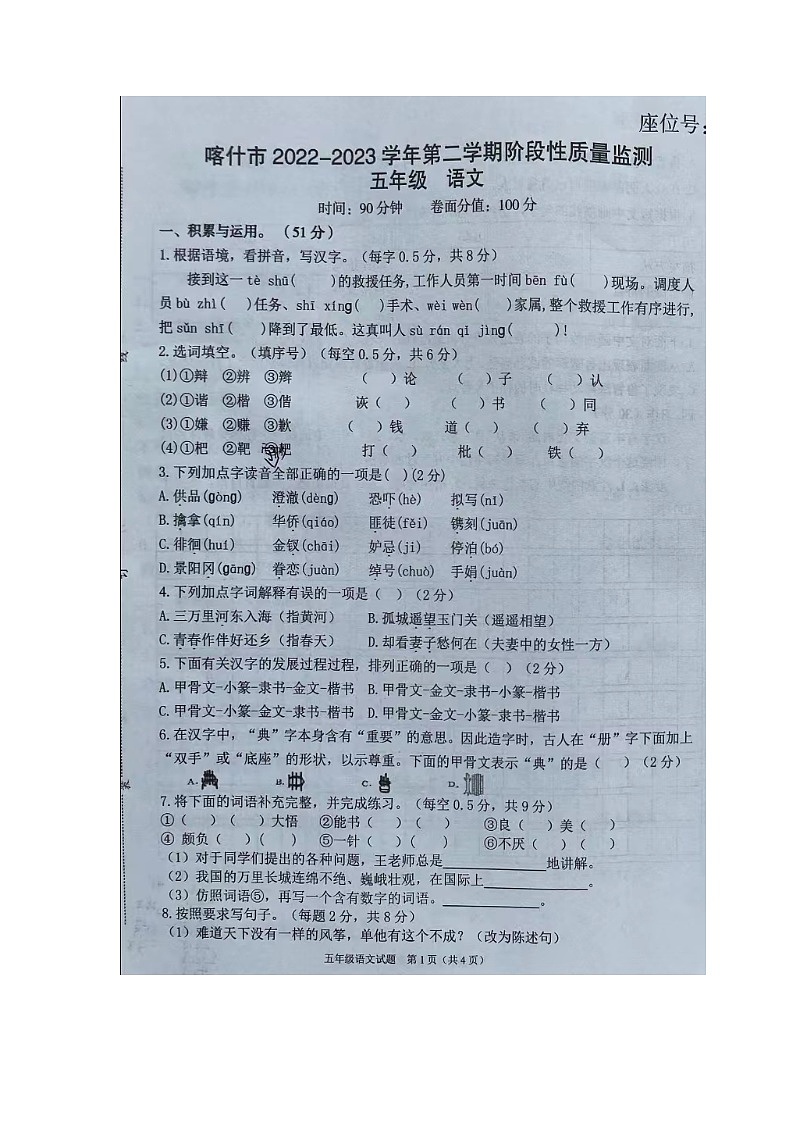 座位号:
喀什市 2022-2023 学年第二学期阶段性质量监测
五年级 语文
时间：90分钟 卷面分值：100分
一、积累与运用。（51分）
1.根据语境，看拼音，写汉字。（每字0.5分，共8分）
接到这一 tè shū( )的救援任务,工作人员第一时间 bēn fù( )现场。调度人
员 bù zhì( )任务、shī xíng( )手术、wèi wèn( )家属,整个救援工作有序进行,
把 sǔn shī( )降到了最低。这真叫人 sù rán qǐ jìng( )!
2.选词填空。（填序号）（每空0.5分，共6分）
(1)①辩 ②辨 ③辫 ( )论 ( )子 ( )认
(2)①谐 ②楷 ③偕 诙( ) ( )书 ( )同
(3)①嫌 ②赚 ③歉 ( )钱 道( ) ( )弃
(4)①杷 ②靶 ③耙 打( ) 枇( ) 铁( )
3.下列加点字读音全部正确的一项是( )(2分)
A.供品(gòng) 澄澈(dèng) 恐吓(hè) 拟写(nǐ)
B.擒拿(qín) 华侨(qiáo) 匪徒(fěi) 镌刻(juān)
C.徘徊(huí) 金钗(chāi) 妒忌(jì) 停泊(bó)
D.景阳冈(gāng) 眷恋(juàn) 绰号(chuò) 手娟(juàn)
4.下列加点字词解释有误的一项是（ ）（2分）
A.三万里河东入海（指黄河） B.孤城遥望玉门关（遥遥相望）
C.青春作伴好还乡（指春天） D.却看妻子愁何在（夫妻中的女性一方）
5.下面有关汉字的发展过程过程，排列正确的一项是（ ）（2分）
A.甲骨文-小篆-隶书-金文-楷书 B.甲骨文-金文-隶书-小篆-楷书
C.甲骨文-小篆-金文-隶书-楷书 D.甲骨文-金文-小篆-隶书-楷书
6.在汉字中，“典”字本身含有“重要”的意思。因此造字时，古人在“册”字下面加上
“双手”或“底座”的形状，以示尊重。下面的甲骨文表示“典”的是（ ）（2分）
A. B. C. D.
7.将下面的词语补充完整，并完成练习。（每空0.5分，共9分）
①（ ）（ ）大悟 ②能书（ ）（ ） ③良（ ）美（ ）
④ 颇负（ ）（ ） ⑤一针（ ）（ ） ⑥不厌（ ）（ ）
（1）对于同学们提出的各种问题，王老师总是____________地讲解。
（2）我国的万里长城连绵不绝、巍峨壮观，在国际上____________。
（3）仿照词语⑤，再写一个含有数字的词语。____________。
8.按照要求写句子。（每题2分，共8分）
（1）难道天下没有一样的风筝，单他有这个不成？（改为陈述句）
五年级语文试题 第1页（共4页）